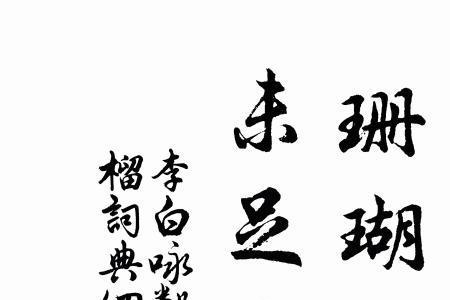 珊瑚
未足
李白咏
榴詞典